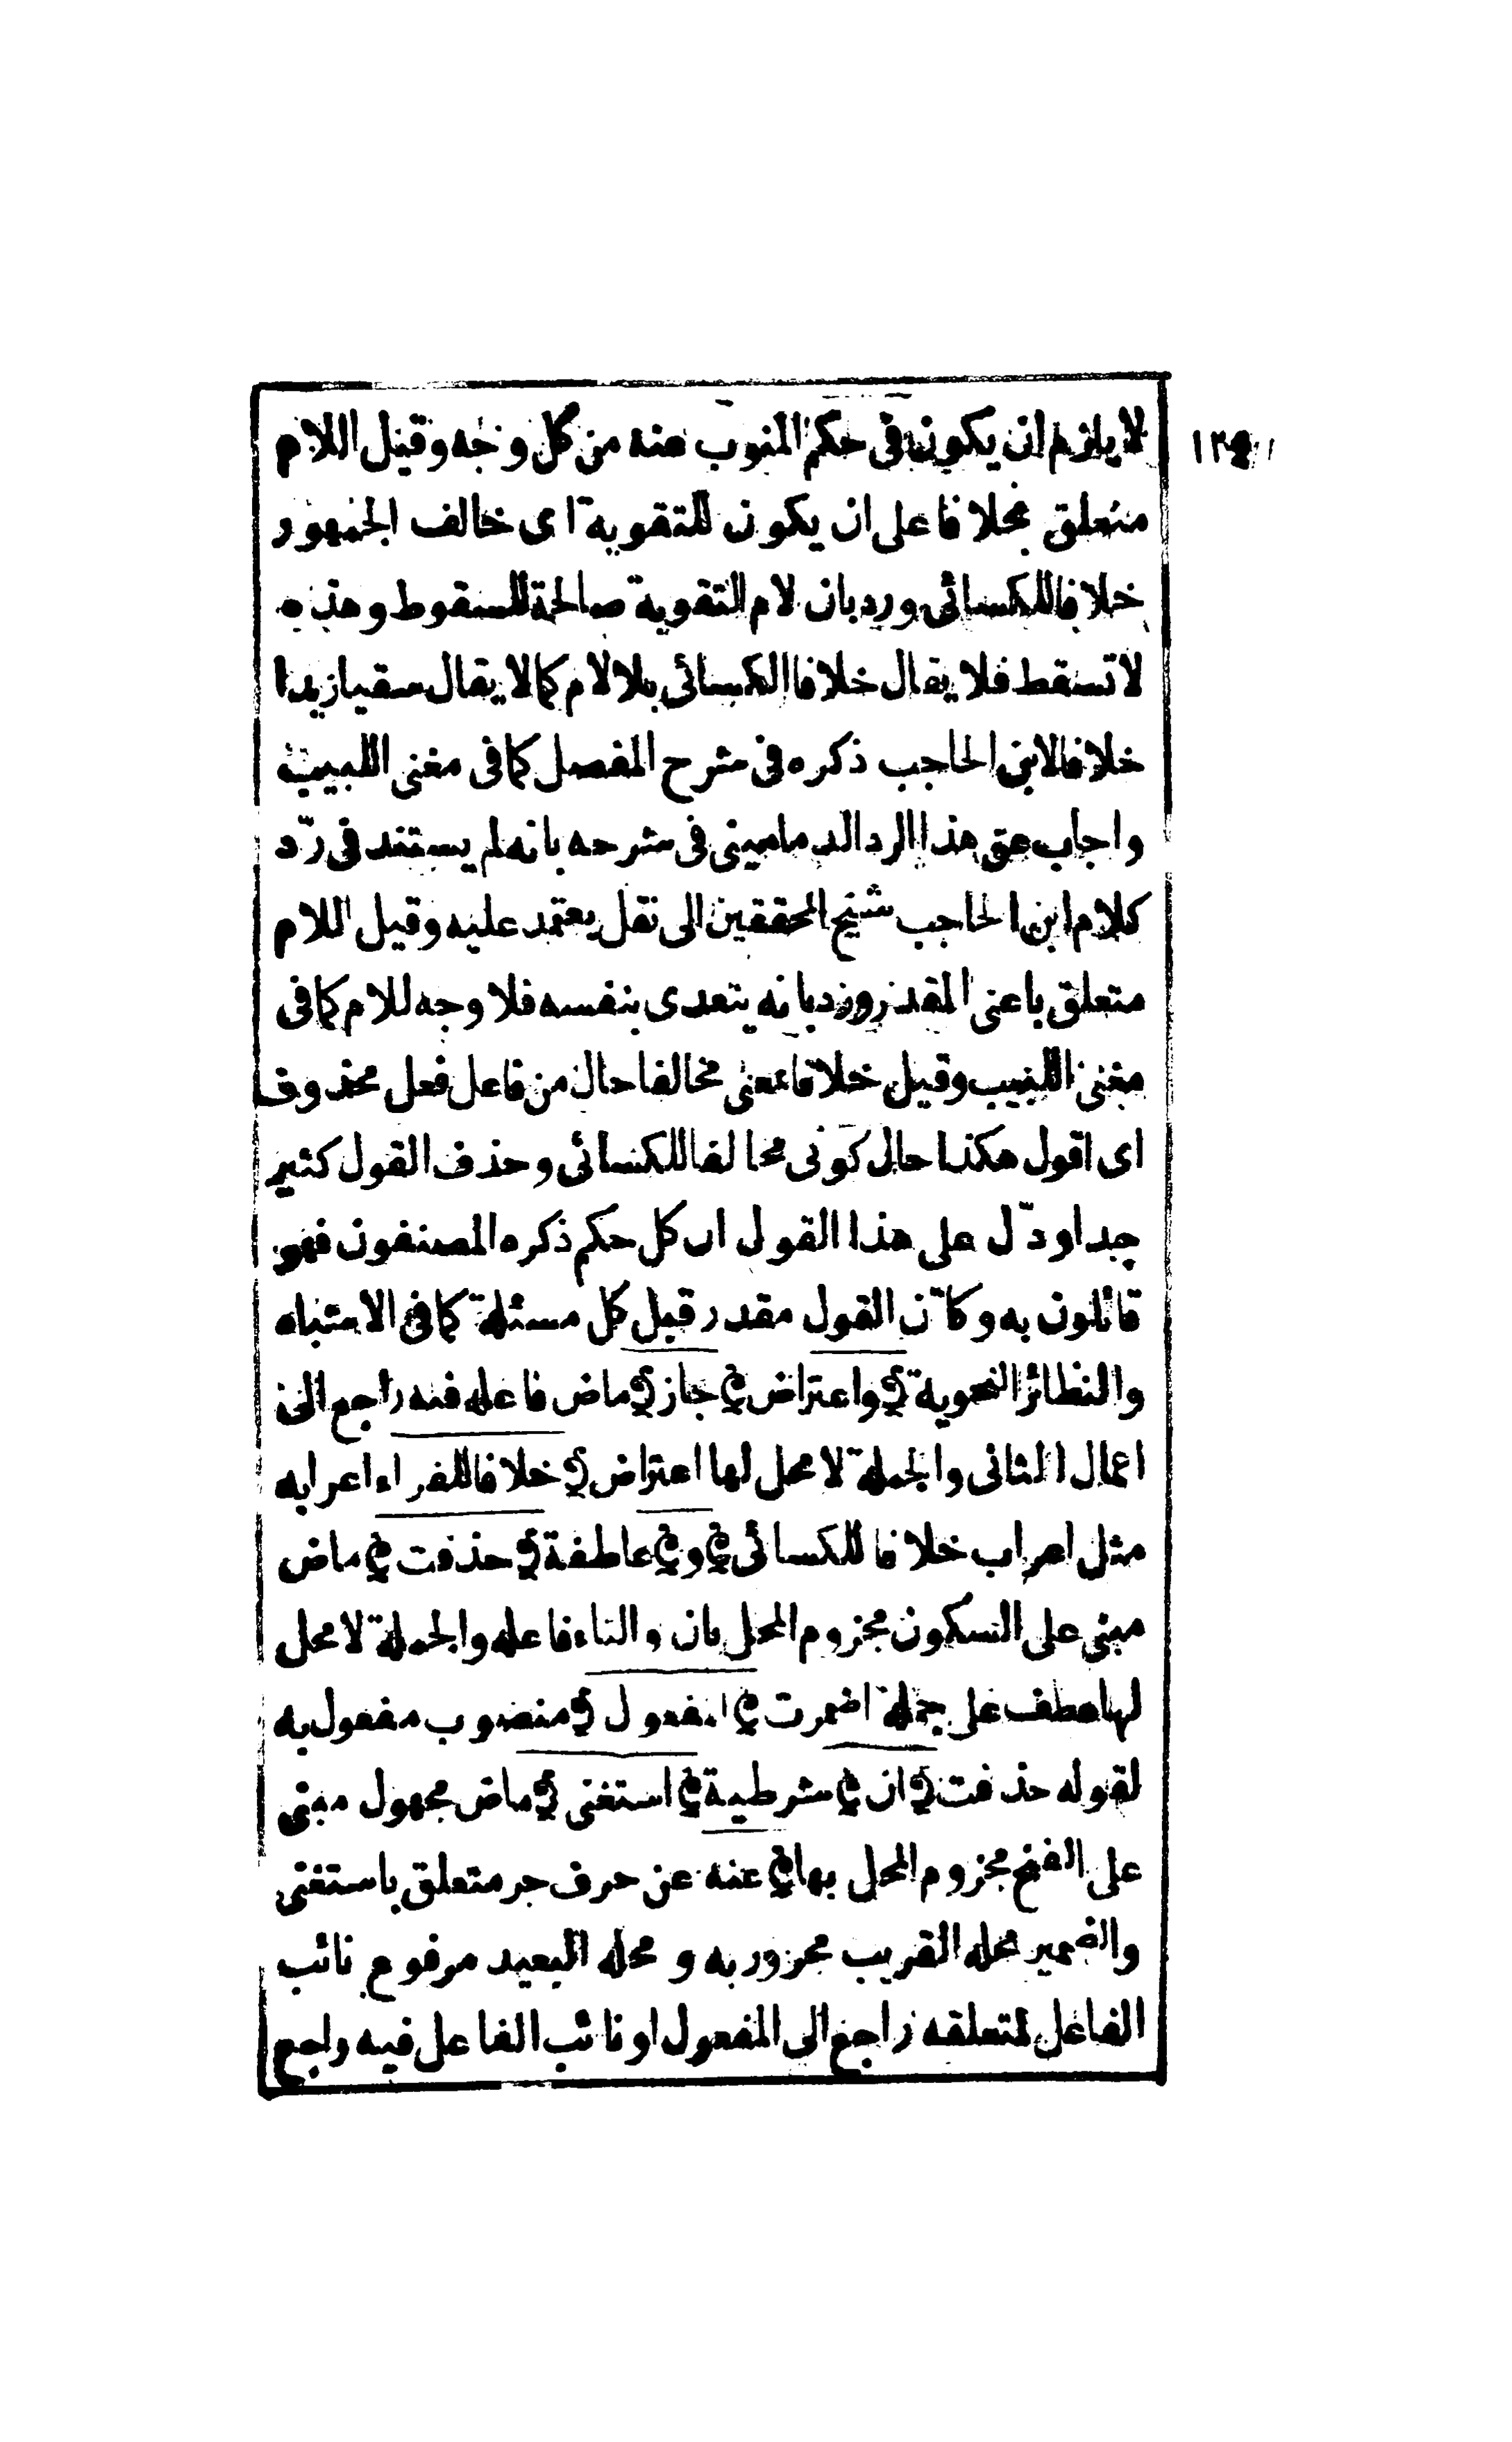 لا يلزم ان يكون فى حكم المنوب عنه من كل وجه وقيل اللام
متعلق بخلافا على ان يكون للتقوية اى خالف الجمهور
خلافا للكسائى ورد بان لام التقوية صالحة للسقوط وهذه
لا تسقط فلا يقال خلافا الكسائى بلا لام كما لا يقال سقيا زيدا
خلافا لابن الحاجب ذكره فى شرح المفصل كما فى مغنى اللبيب
واجاب عن هذا الرد الدمامينى فى شرحه بانه لم يستند فى ردّ
كلام ابن الحاجب شيخ المحققين الى نقل يعتمد عليه وقيل اللام
متعلق باعنى المقدر ورد بانه يتعدى بنفسه فلا وجه للام كما فى
مغنى اللبيب وقيل خلافا بمعنى مخالفا حال من فاعل فعل محذوف
اى اقول هكذا حال كونى مخالفا للكسائى وحذف القول كثير
جدا ودلّ على هذا القول ان كل حكم ذكره المصنفون فهو
قائلون به وكان القول مقدر قبل كل مسئلة كما فى الاشباه
والنظائر النحوية و اعتراض جاز ماض فاعله فيه راجع الى
اعمال الثانى والجملة لا محل لها اعتراض خلافا للفراء اعرابه
مثل اعراب خلافا للكسائى و عاطفة حذفت ماض
مبنى على السكون مجزوم المحل بان والتاء فاعله والجملة لا محل
لها عطف على جملة اضمرت المفعول منصوب مفعول به
لقوله حذفت ان شرطية استغنى ماض مجهول مبنى
على الفتح مجزوم المحل بها عنه عن حرف جر متعلق باستغنى
والضمير محله القريب مجرور به و محله البعيد مرفوع نائب
الفاعل لمتعلقه راجع الى المفعول او نائب الفاعل فيه راجع